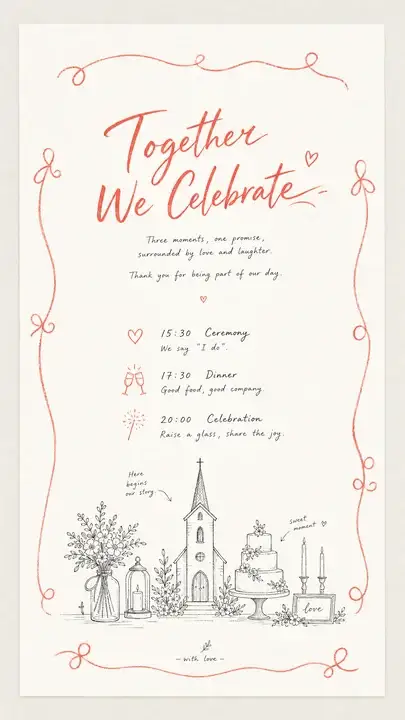 Together
We Celebrate
Three moments, one promise,
surrounded by love and laughter.
Thank you for being part of our day.
15:30 Ceremony
We say "I do".
17:30 Dinner
Good food, good company.
20:00 Celebration
Raise a glass, share the joy.
Here
begins
our story
sweet
moment
love
– with love –